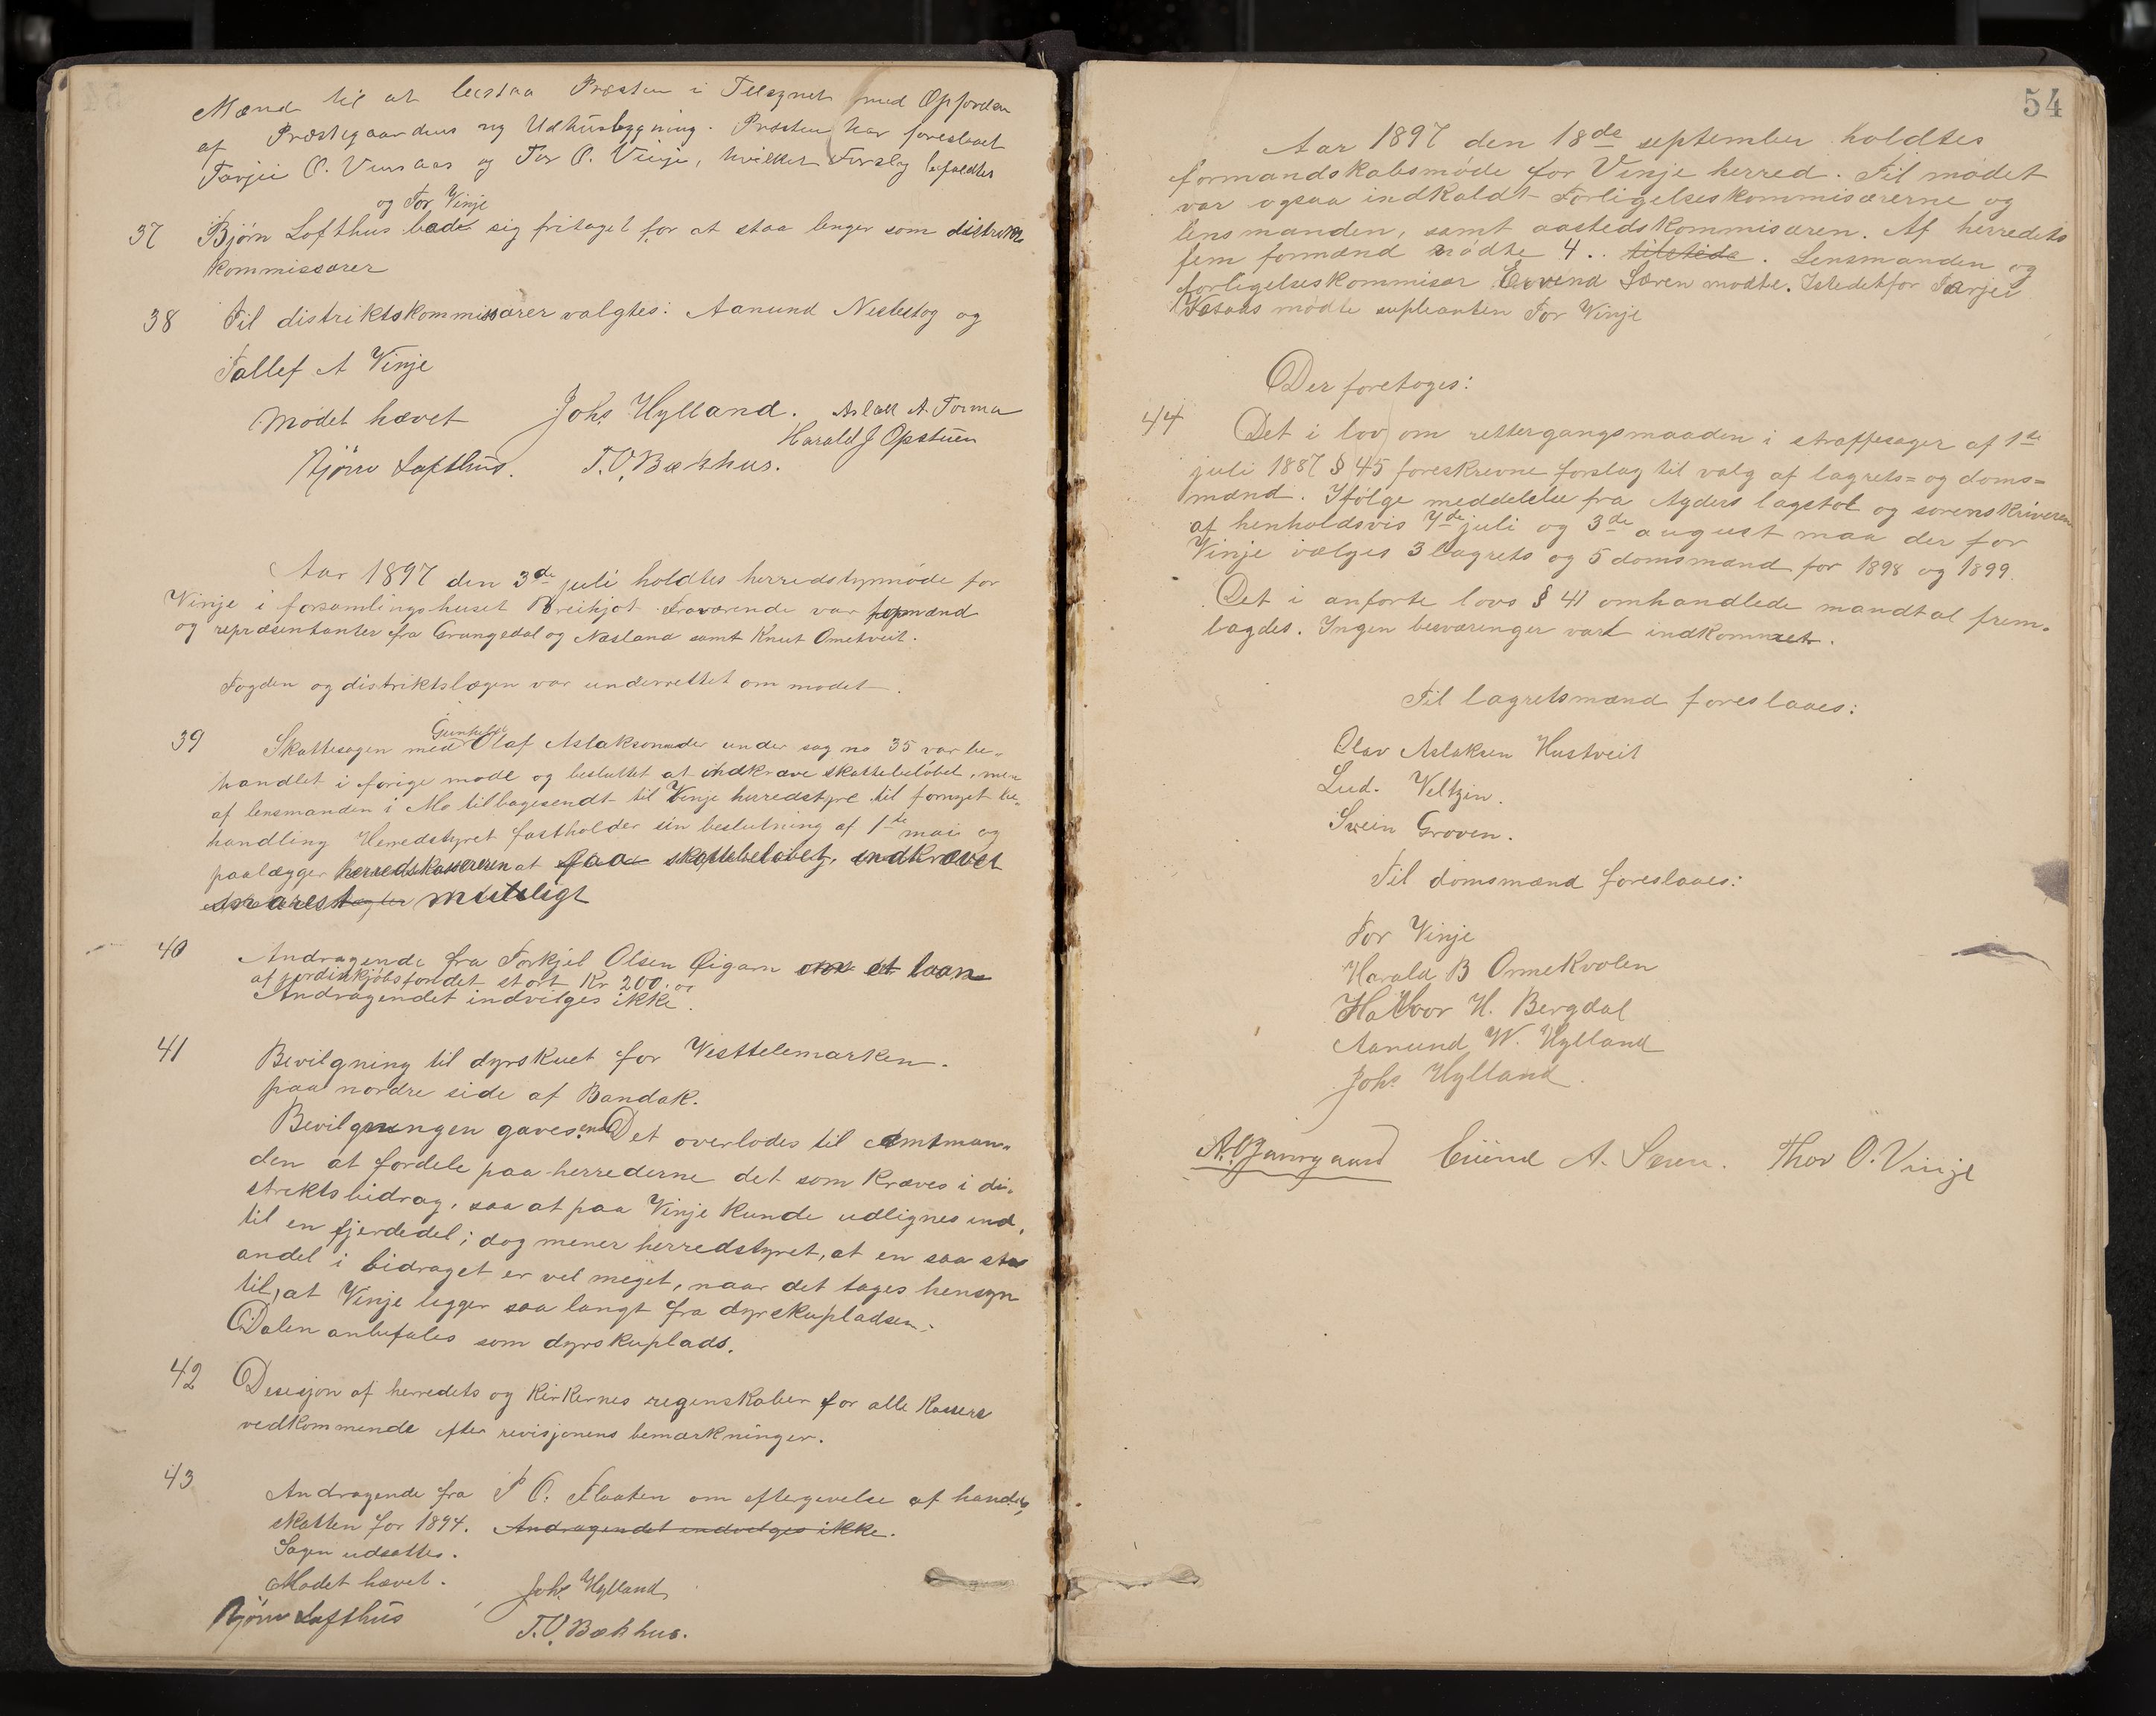 Mænd til at bistaa Præsten i Tilsynet med Opførelsen
af Præstegaardens ny Udhusbygning. Præsten har foreslaaet
Tarjei O. Vesaas og Tor O. Vinje, hvilket Forslag bifaldtes
og Tor Vinje
37 Bjørn Lofthus bade sig fritaget for at staa lenger som distrikts
kommissærer
38 Til distriktskommissærer valgtes: Aanund Nesbstog og
Tallef A Vinje
Mødet hævet Johs. Hylland. Aslak A. Torma
Harald J Opstuen
Bjørn Lofthus. T. O. Bækhus.
Aar 1897 den 3de juli holdtes herredstyrmøde for
Vinje i forsamlingshuset Breihjot. Fraværende var formænd
og repræsentanter fra Grungedal og Nesland samt Knut Ometveit.
Fogden og distriktslægen var underrettet om mødet.
39 Skattesagen med Gunhild Olaf Aslaksen der under sag no 35 var be-
handlet i forige møde og besluttet at indkræve skattebeløbet, men
af lensmanden i Mo tilbagesendt til Vinje herredstyre til fornyet be-
handling Herredstyret fastholder sin beslutning af 1ste mai og
paalægger herredskassereren at faa skattebeløbet indkrævet
snarest muligt
40 Andragende fra Torkjel Olsen Øigarn om et laan
af jordindkjøbsfondet stort Kr 200.00
Andragendet indvilges ikke.
41 Bevilgning til dyrskuet for Vesttelemarken
paa nordre side af Bandak.
Bevilgningen gaves. Det overlodes til amtman-
den at fordele paa herrederne det som kræves i di-
striktsbidrag, saa at paa Vinje kunde udlignes ind-
til en fjerdedel; dog mener herredstyret, at en saa stor
andel i bidraget er vel meget, naar det tages hensyn
til, at Vinje ligger saa langt fra dyrskupladsen.
Dalen anbefales som dyrskuplads.
42 Desesjon af herredets og kirkernes regnskaber for alle kassers
vedkommende efter revisjonens bemærkninger.
43 Andragende fra P O. Flaaten om eftergivelse af handels
skatten for 1894. Andragendet indvilges ikke.
Sagen udsættes.
Mødet hævet. Johs. Hylland
Bjørn Lofthus T. O. Bækhus.
54
Aar 1897 den 18de september holdtes
formandskabsmøde for Vinje herred. Til mødet
var ogsaa indkaldt Forligelseskommisærerne og
lensmanden, samt aastedskommisæren. Af herredets
fem formænd mødte 4. tilstede. Lensmanden og
forligelseskommisær Eivind Særen mødte. Istedetfor Tarjei
Vesaas mødte supleanten Tor Vinje
Der foretoges:
44 Det i lov om rettergangsmaaden i straffesager af 1ste
juli 1887 § 45 foreskrevne forslag til valg af lagrets- og doms-
mænd. Ifølge meddelelse fra Agders lagstol og sorenskriveren
af henholdsvis 7de juli og 3de august maa der for
Vinje vælges 3 lagrets og 5 domsmænd for 1898 og 1899.
Det i anførte lovs § 41 omhandlede mandtal frem-
lagdes. Ingen besværinger vart indkommet.
Til lagretsmænd foreslaaes:
Olav Aslaksen Hustveit
Lud. Veltzin.
Svein Groven.
Til domsmænd foreslaaes:
Tor Vinje
Harald B Ormekvolen
Halvor H. Bergdal
Aanund W. Hylland
Johs Hylland.
Eiiend A. Særen. Thor O. Vinje